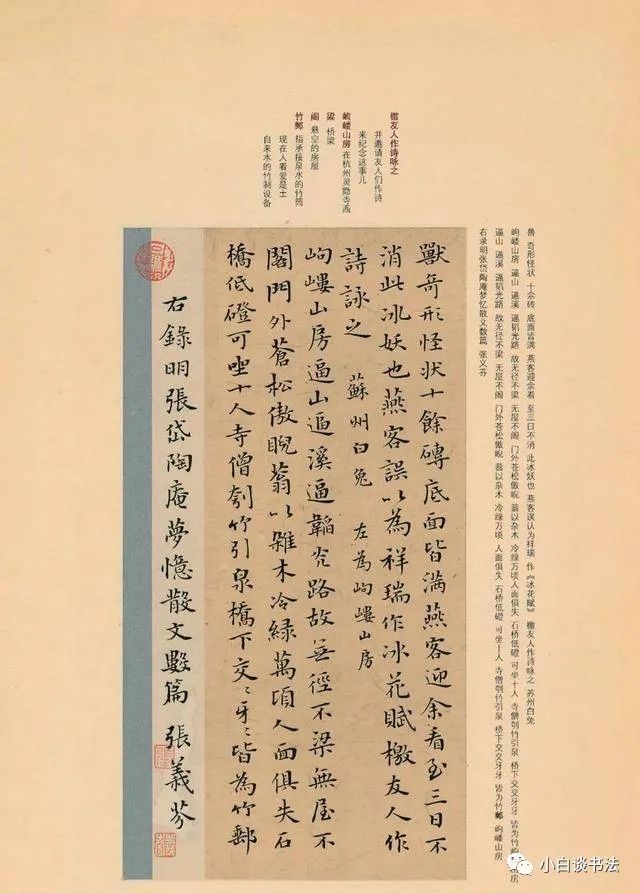 兽 奇形怪状 十余砖 底面皆满 燕客迎余看 至三日不消 此冰妖也 燕客误认为祥瑞 作《冰花赋》 檄友人作诗咏之 苏州白兔
岣嵝山房 逼山 逼溪 逼韬光路 故无径不梁 无屋不阁 门外苍松傲睨 蓊以杂木 冷绿万顷人面俱失 石桥低磴 可坐十人 寺僧刳竹引泉 桥下交交牙牙 皆为竹
逼山 逼溪 逼韬光路 故无径不梁 无屋不阁 门外苍松傲睨 蓊以杂木 冷绿万顷 人面俱失 石桥低磴 可坐十人 寺僧刳竹引泉 桥下交交牙牙 皆为竹邮 岣嵝山房
右录明张岱陶庵梦忆散文数篇 张义芬
檄友人作诗咏之
并邀请友人们作诗
来纪念这事儿
岣嵝山房 在杭州灵隐寺西
梁 桥梁
阁 悬空的房屋
竹邮 指承接泉水的竹筒
现在人看爱是土
自来水的竹制设备
獸奇形怪状十餘磚底面皆满燕客迎余看至三日不
消此冰妖也燕客誤以為祥瑞作冰花賦檄友人作
詩詠之 蘇州白兔 左為岣嶁山房
岣嶁山房逼山逼溪逼韜光路故無徑不梁無屋不
閣門外蒼松傲睨蓊以雜木冷緑萬頃人面俱失石
橋低磴可坐十人寺僧刳竹引泉橋下交〻牙〻皆為竹郵
右錄明張岱陶庵夢憶散文數篇 張義芬
小白谈书法